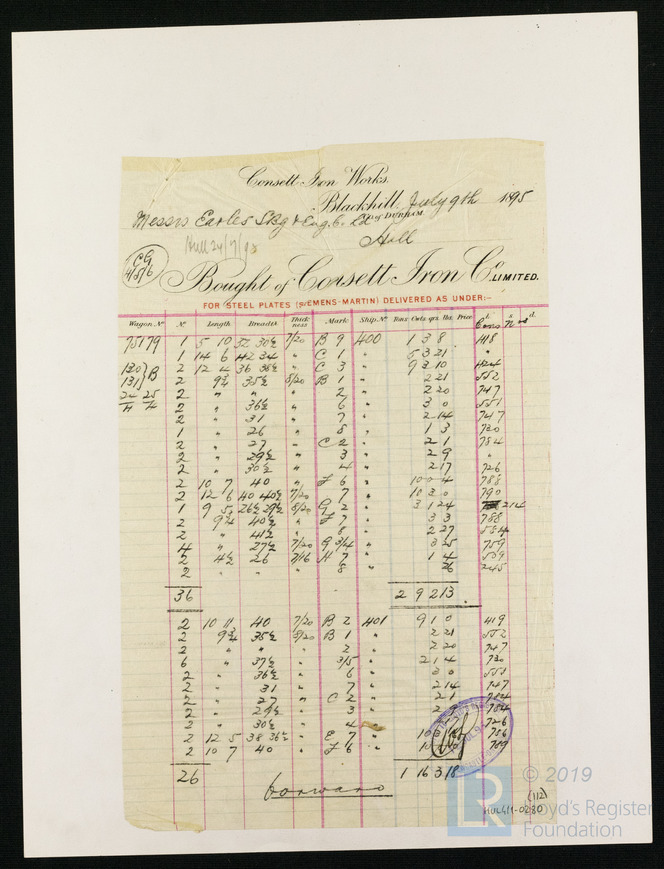 Consett Iron Works.
Blackhill, July 9th 1895
Co. of DURHAM.
Messrs Earles Sbg & Eng. Co. Ld
Hull
Hull 24/7/95
Bought of Consett Iron Co. LIMITED.
FOR STEEL PLATES (SIEMENS-MARTIN) DELIVERED AS UNDER:-
Wagon. No No. Length Breadth Thickness Mark Ship. No Tons Cwts qrs lbs. Price
75179 1 5 10 32 30½ 7/20 B 9 400 1 3 8 418
1 14 6 42 34 " C 1 " 5 3 21 "
130 } B 2 12 4 36 36½ " C 3 " 9 3 10 424
131 2 " 9¾ 35½ 8/20 B 1 " 2 21 552
24 25 2 " " " " 2 " 2 20 747
2 " 36½ " 6 " 3 0 551
2 " 31 " 7 " 2 14 747
1 " 26 " 8 " 1 3 730
2 " 27 " C 2 " 2 1 784
2 " 29½ " 3 " 2 9 "
2 " 30½ " 4 " 2 17 726
2 10 7 40 " F 6 " 10 0 4 788
2 12 6 40 40½ 7/20 " 7 " 10 3 0 790
1 9 5 26½ 29½ 8/20 G 2 " 3 1 24 214
2 " 9¾ 40½ " F 7 " 3 3 788
2 " 41½ " 8 " 2 27 584
4 " 27½ 7/20 G 3/4 " 3 25 759
2 " 4½ 26 7/16 H 7 " 1 4 539
2 " " " 8 " 26 245
36 2 9 2 13
2 10 11 40 7/20 B 2 401 9 1 0 419
2 " 9¾ 35½ 8/20 B 1 " 2 21 552
2 " " " 2 " 2 20 747
6 " 37½ " 3/5 " 2 1 4 730
2 " 36½ " 6 " 3 0 551
2 " 31 " 7 " 2 14 747
2 " 27 " C 2 " 2 1 784
2 " 29½ " 3 " 2 784
2 " 30½ " 4 " 17 726
2 12 5 38 36½ " E 7 " 10 3 786
2 10 7 40 " F 6 " 10 789
26 1 16 3 18
forward
© 2019
(112)
HUL411-0280
LR Lloyd's Register
Foundation